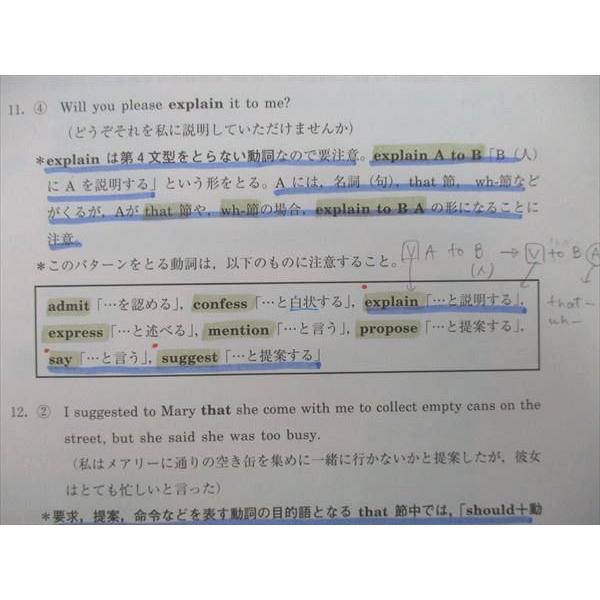 11. ④ Will you please explain it to me?
(どうぞそれを私に説明していただけませんか)
＊explain は第4文型をとらない動詞なので要注意。explain A to B「B (人)
に A を説明する」という形をとる。A には，名詞（句），that 節， wh-節など
がくるが，Aが that 節や，wh-節の場合，explain to B A の形になることに
注意。
V A to B (人) → V to B A
＊このパターンをとる動詞は，以下のものに注意すること。
admit「…を認める」，confess「…と白状する」，explain「…と説明する」，
that–
express「…と述べる」，mention「…と言う」，propose「…と提案する」，
wh–
say「…と言う」，suggest「…と提案する」
12. ② I suggested to Mary that she come with me to collect empty cans on the
street, but she said she was too busy.
(私はメアリーに通りの空き缶を集めに一緒に行かないかと提案したが，彼女
はとても忙しいと言った)
＊要求，提案，命令などを表す動詞の目的語となる that 節中では，「should＋動